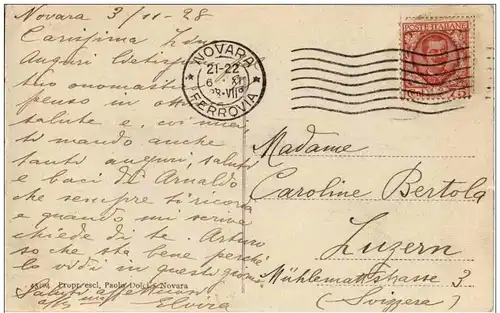 Novara 3/11-28
Carissima
Auguri
tuo onomastico
penso in
salute e, coi miei
ti mando anche
tanti auguri, saluti
e baci di Arnaldo
che sempre ti ricorda
e quando mi scrive
chiede di te. Arturo
so che sta bene perchè
lo vidi in questi giorni
Saluti affettuosi
Elvira
propr. escl. Paolo Dolci, Novara
NOVARA
21-22
FERROVIA
POSTE ITALIANE
75
Madame
Caroline Bertola
Luzern
Mühlemattstrasse 3
(Svizzera)